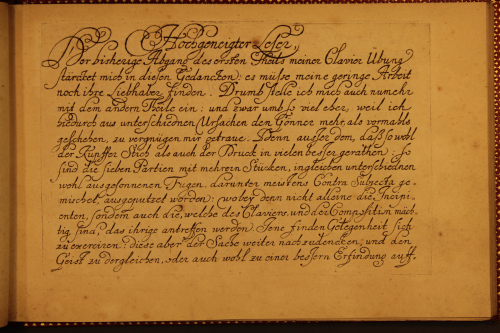 Hochgeneigter Leser,
Der bisherige Abgang des ersten Theils meiner Clavier Übung
stärcket mich in diesen Gedancken: es müsse meine geringe Arbeit
noch ihre Liebhaber finden. Drumb stelle ich mich auch numehr
mit dem andern Theile ein: und zwar umb so viel eher, weil ich
hiedurch aus unterschiednen Ursachen den Gönner mehr, als vormahls
geschehen, zu vergnügen mir getraue. Denn ausser dem, daß so wohl
der Kupffer Stich als auch der Druck in vielen besser gerathen: So
sind die sieben Partien mit mehren Stücken, ingleichen unterschiednen
wohl ausgesonnenen Fugen, darunter meistens Contra Subjecta ge-
mischet, ausgeputzet worden; wobey denn nicht alleine die Incipi-
enten, sondern auch die, welche des Claviers und der Composition mäch-
tig sind, das ihrige antreffen werden. Jene finden Gelegenheit sich
zu exerciren: diese aber der Sache weiter nachzudencken; und den
Geist zu dergleichen, oder auch wohl zu einer bessern Erfindung auff-